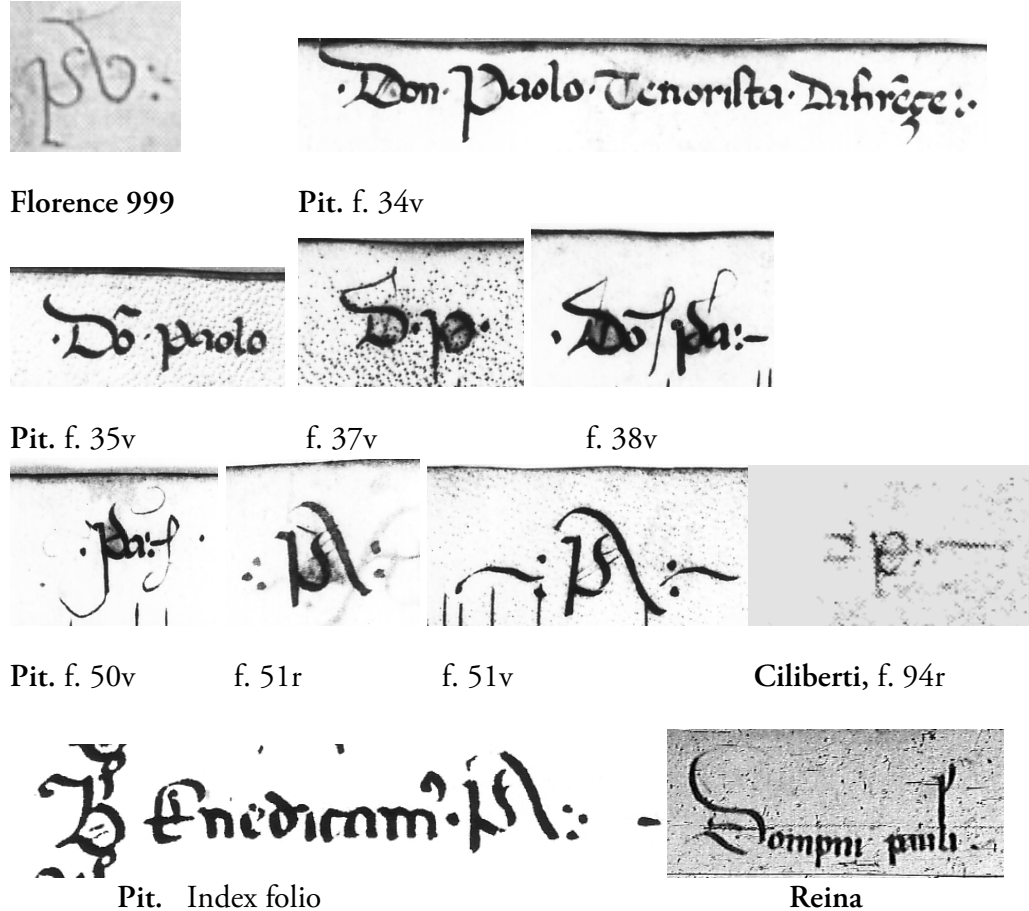 ·Don· Paolo· Tenorista· Dafirēçe:·
Florence 999 Pit. f. 34v
·Dō· paolo
·D·p·
·Dō/ pa:–
Pit. f. 35v f. 37v f. 38v
·pa:
Pit. f. 50v f. 51r f. 51v Ciliberti, f. 94r
Benedicam
Dompni pauli.
Pit. Index folio Reina